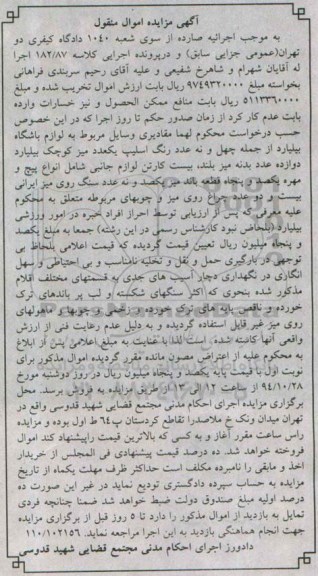 آگهی مزایده اموال منقول
به موجب اجرائیه صادره از سوی شعبه ۱۰۴۰ دادگاه کیفری دو
تهران(عمومی جزایی سابق) و درپرونده اجرایی کلاسه ۱۸۲/۸۷ اجرا
له آقایان شهرام و شاهرخ شفیعی و علیه آقای رحیم سربندی فراهانی
بخواسته مبلغ ۹۷۴۹۳۲۰۰۰۰ ریال بابت ارزش اموال تخریب شده و مبلغ
۵۱۱۳۳۶۰۰۰۰ ریال بابت منافع ممکن الحصول و نیز خسارات وارده
بابت عدم کار کرد از زمان صدور حکم تا روز اجرا که در این خصوص
حسب درخواست محکوم لهما مقادیری وسایل مربوط به لوازم باشگاه
بیلیارد از جمله چهل و نه عدد رنگ اسلیپ یکعدد میز کوچک بیلیارد
دوازده عدد بدنه میز بلند، بیست کارتن لوازم جانبی شامل انواع پیچ و
مهره یکصد و پنجاه قطعه باند میز یکصد و نه عدد سنگ روی میز ایرانی
بیست و دو عدد چراغ روی میز و چوبهای مربوطه متعلق به محکوم
علیه معرفی که پس از ارزیابی توسط احراز افراد خبره در امور ورزشی
بیلیارد (بلحاض نبود کارشناس رسمی در این رشته) جمعا به مبلغ یکصد
و پنجاه میلیون ریال تعیین قیمت گردیده که قیمت اعلامی بلحاظ بی
توجهی در بارگیری حمل و نقل و تخلیه نامناسب و بی احتیاطی و سهل
انگاری در نگهداری دچار آسیب های جدی به قسمتهای مختلف اقلام
مذکور شده بنحوی که اکثر سنگهای شکسته و لب پر باندهای ترک
خورده و ناقص پایه های ترک خورده و زخمی و چوبها و ماهوتهای
روی میز غیر قابل استفاده گردیده و به دلیل عدم رعایت فنی از ارزش
واقعی آنها کاسته شده است لذا با عنایت به مبلغ اعلامی پس از ابلاغ
به محکوم علیه از اعتراض مصون مانده مقرر گردیده اموال مذکور برای
نوبت اول با قیمت پایه یکصد و پنجاه میلیون ریال در روز دوشنبه مورخ
۹۴/۱۰/۲۸ از ساعت ۱۲ الی ۱۳ از طریق مزایده به فروش برسد. محل
برگزاری مزایده اجرای احکام مدنی مجتمع قضایی شهید قدوسی واقع در
تهران میدان ونک خ ملاصدرا تقاطع کردستان پ٦٤ ط اول بوده و مزایده
راس ساعت مقرر آغاز و به کسی که بالاترین قیمت راپیشنهاد کند اموال
فروخته خواهد شد. ده درصد قیمت پیشنهادی فی المجلس از خریدار
اخذ و مابقی را نامبرده مکلف است حداکثر ظرف مهلت یکماه از تاریخ
مزایده به حساب سپرده دادگستری تودیع نماید در غیر این صورت ده
درصد اولیه مبلغ صندوق دولت ضبط خواهد شد ضمنا چنانچه فردی
تمایل به بازدید از اموال مذکور را دارد تا ۵ روز قبل از برگزاری مزایده
جهت انجام هماهنگی بازدید به این اجرا مراجعه نماید. ۱۱۰/۱۰۲۱۵۶
دادورز اجرای احکام مدنی مجتمع قضایی شهید قدوسی